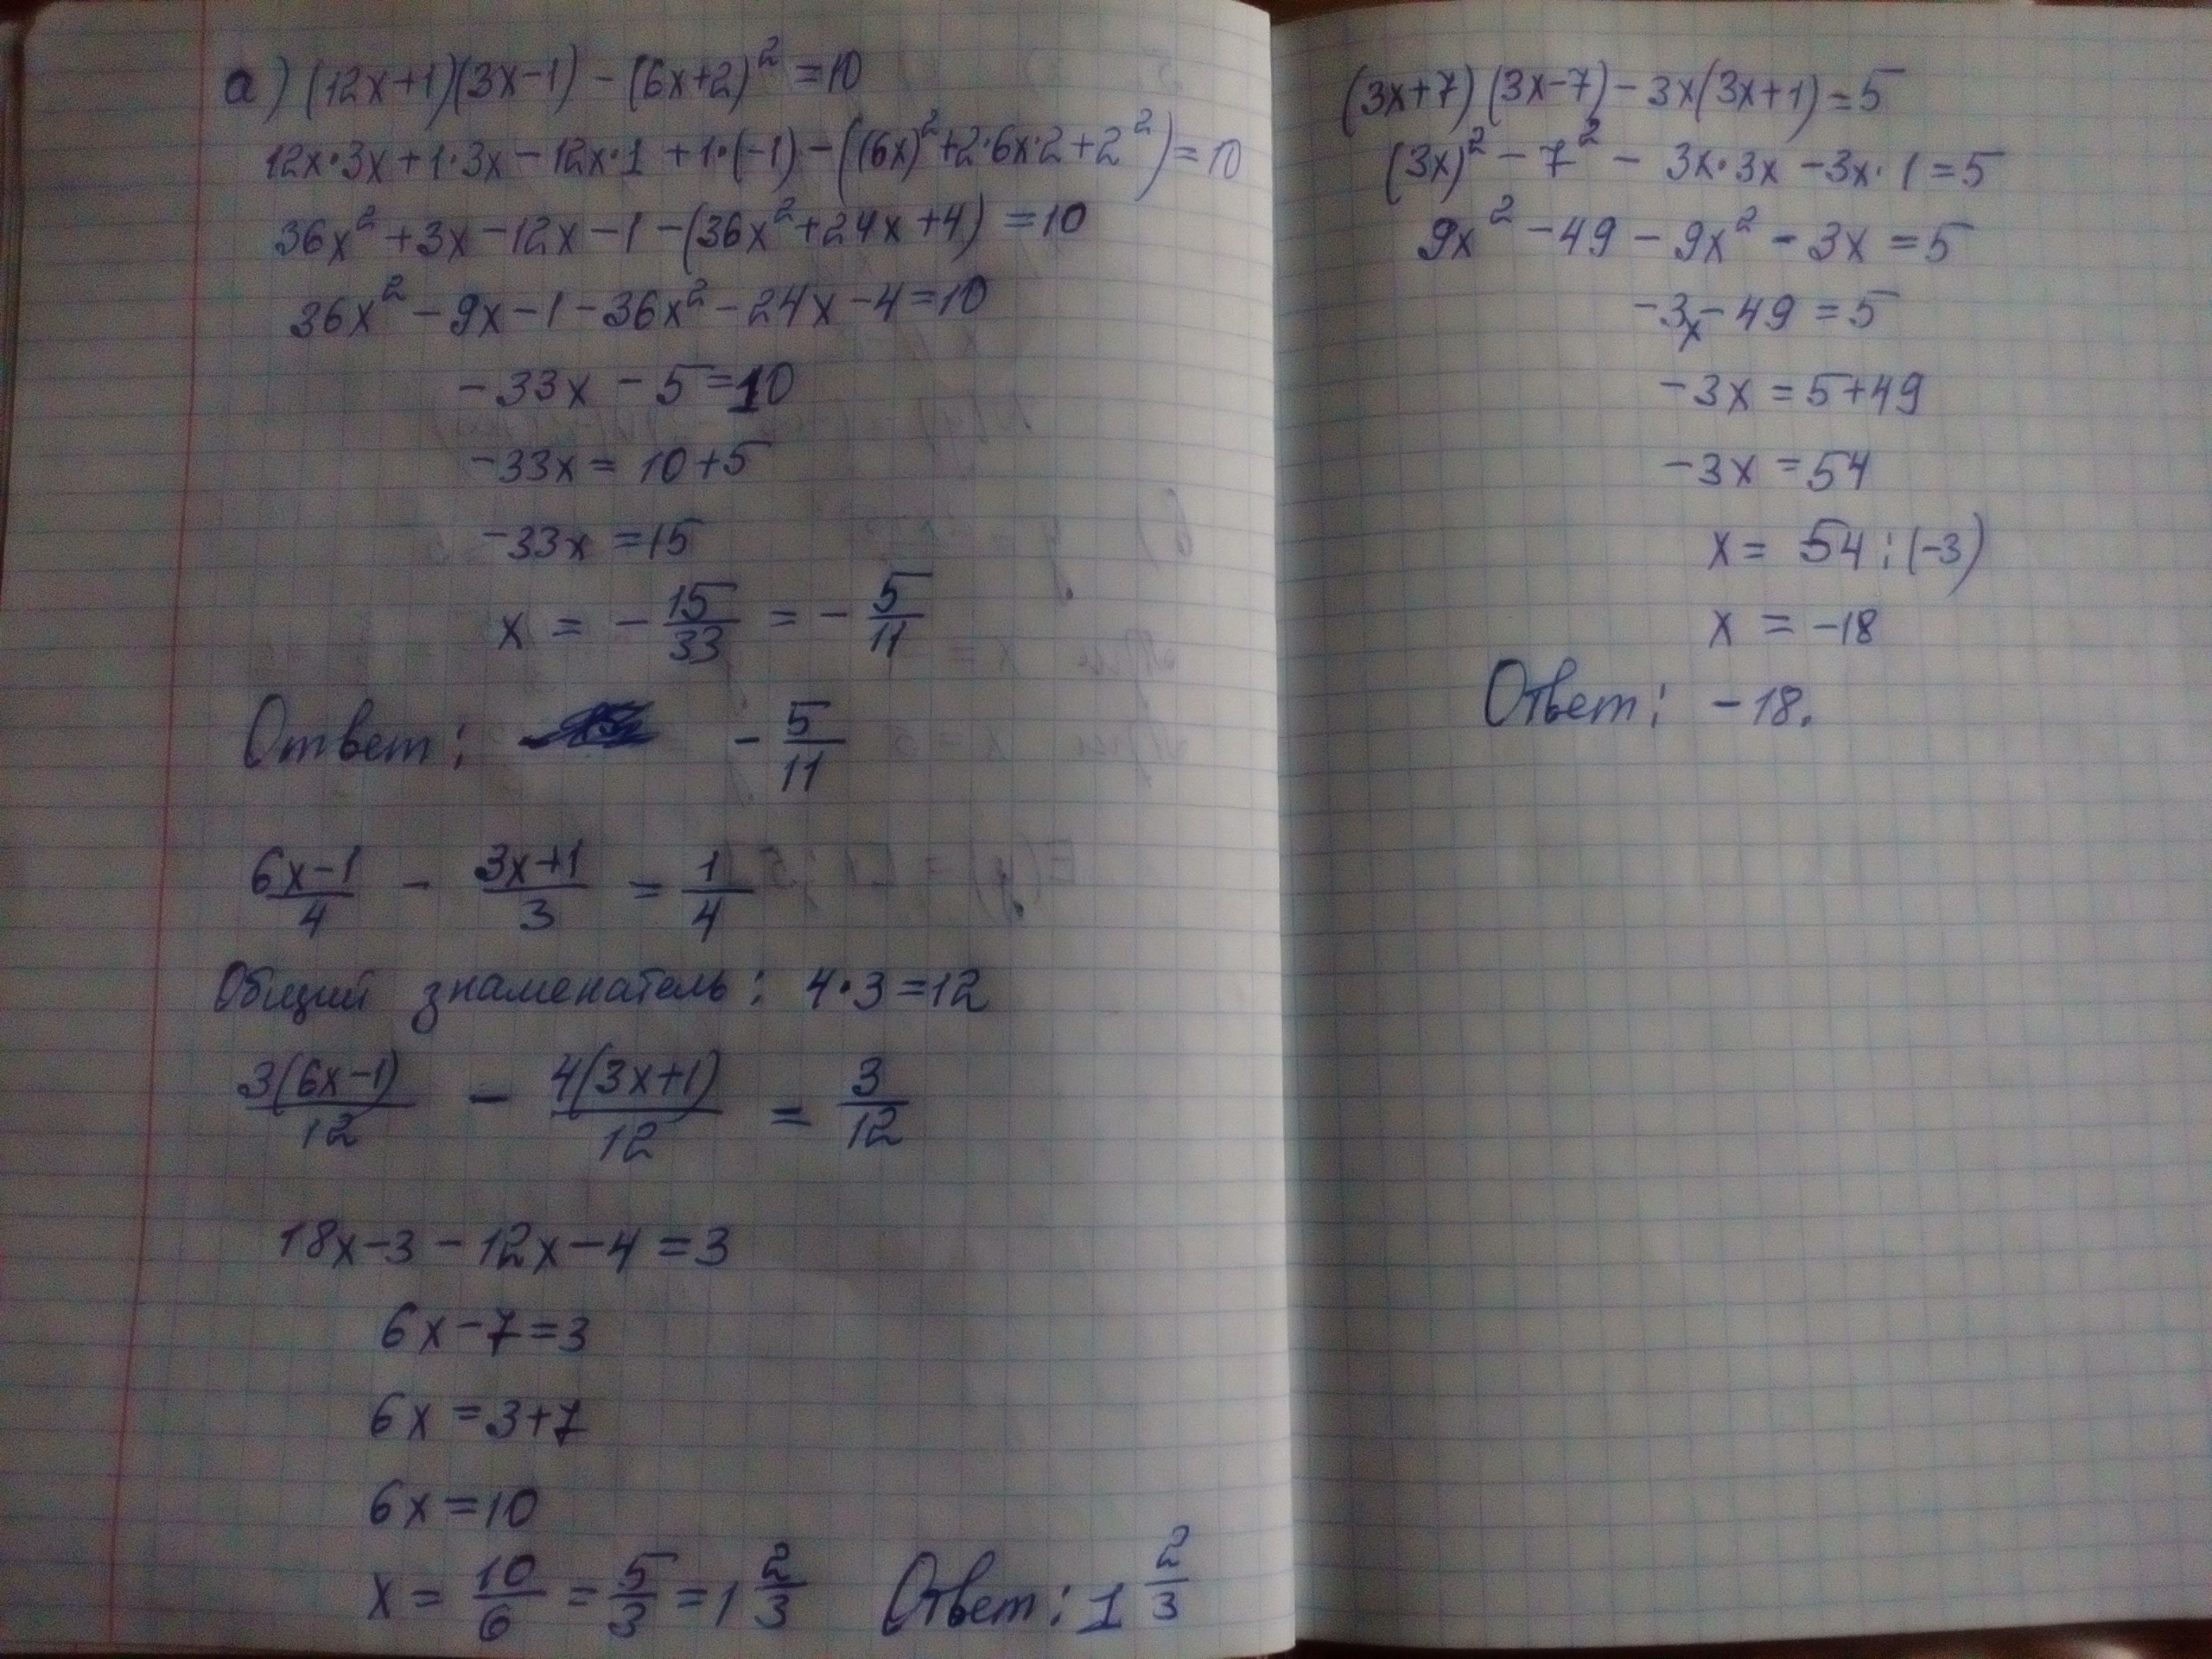 а) (12x+1)(3x-1) - (6x+2)² = 10
12x·3x + 1·3x - 12x·1 + 1·(-1) - ((6x)² + 2·6x·2 + 2²) = 10
36x² + 3x - 12x - 1 - (36x² + 24x + 4) = 10
36x² - 9x - 1 - 36x² - 24x - 4 = 10
-33x - 5 = 10
-33x = 10 + 5
-33x = 15
x = - 15/33 = - 5/11
Ответ: - 5/11
6x-1/4 - 3x+1/3 = 1/4
Общий знаменатель: 4·3=12
3(6x-1)/12 - 4(3x+1)/12 = 3/12
18x-3-12x-4=3
6x-7=3
6x=3+7
6x=10
x = 10/6 = 5/3 = 1 2/3 Ответ: 1 2/3
(3x+7)(3x-7) - 3x(3x+1) = 5
(3x)² - 7² - 3x·3x - 3x·1 = 5
9x² - 49 - 9x² - 3x = 5
-3x - 49 = 5
-3x = 5+49
-3x = 54
x = 54:(-3)
x = -18
Ответ: -18.